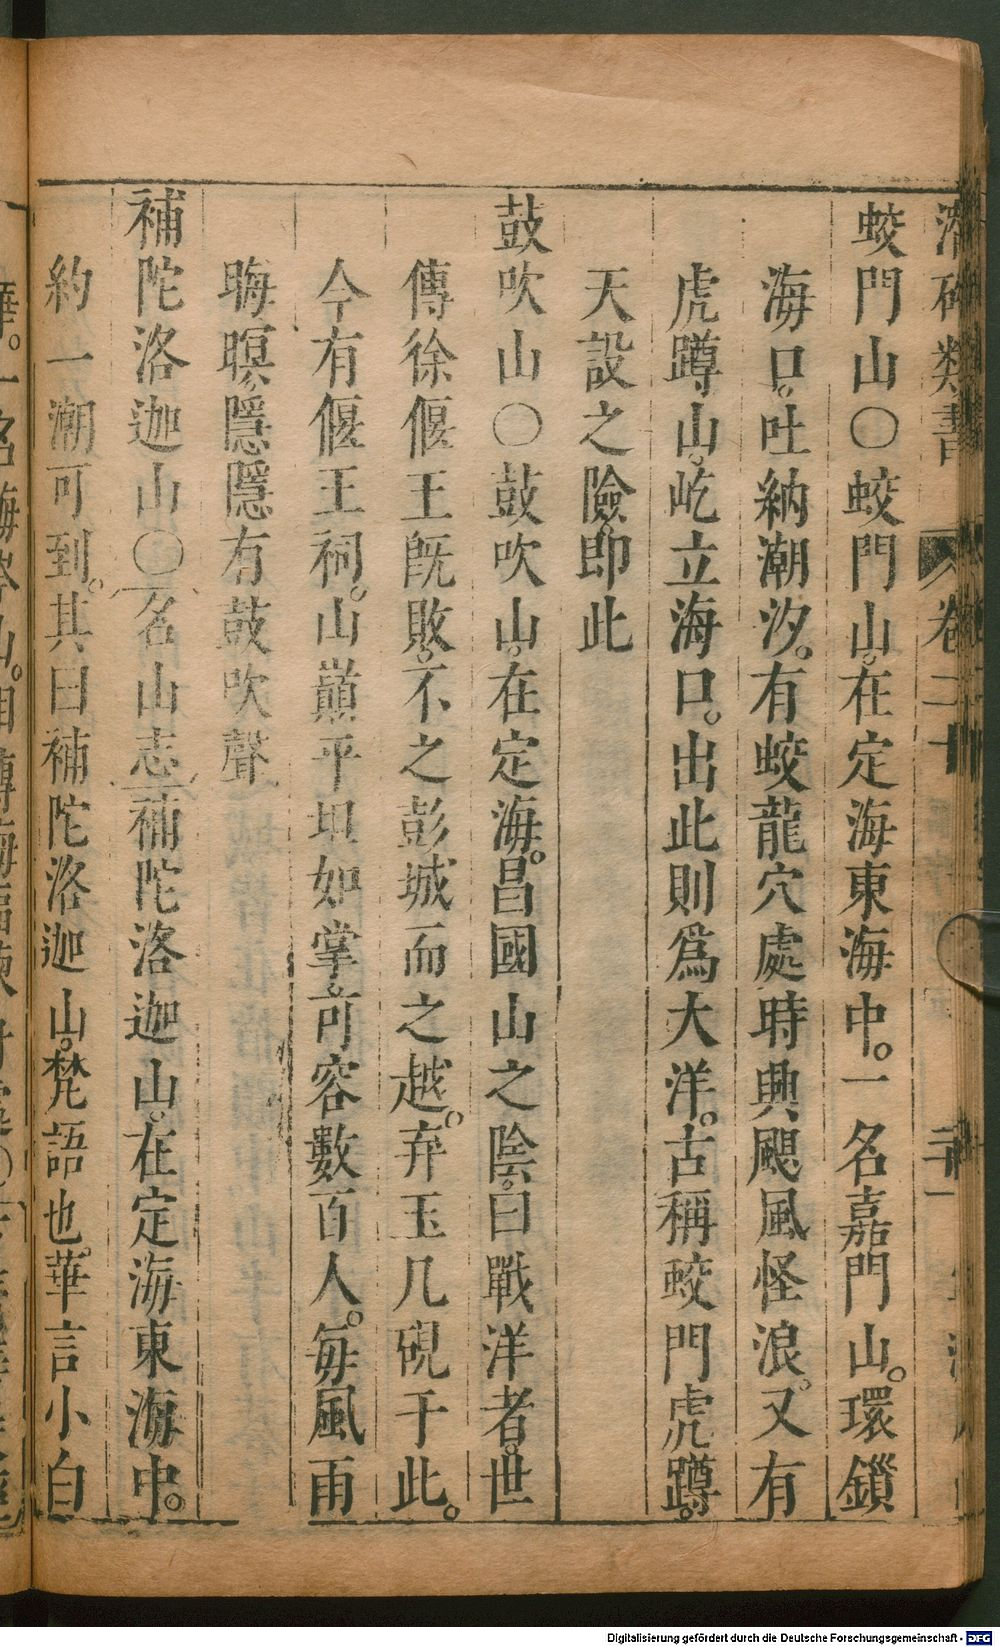 潛確類書 卷二十
蛟門山○蛟門山。在定海東海中。一名嘉門山。環鎖
海口。吐納潮汐。有蛟龍穴處時興颶風怪浪。又有
虎蹲山。屹立海口。出此則爲大洋。古稱蛟門虎蹲。
天設之險。即此
鼓吹山○鼓吹山。在定海。昌國山之陰。曰戰洋者。世
傳徐偃王旣敗。不之彭城而之越。弃玉几硯于此。
今有偃王祠。山巔平坦如掌。可容數百人。每風雨
晦暝。隱隱有鼓吹聲
補陀洛迦山○名山志補陀洛迦山。在定海東海中。
約一潮可到。其曰補陀洛迦山。梵語也。華言小白
Digitalisierung gefördert durch die Deutsche Forschungsgemeinschaft - DFG